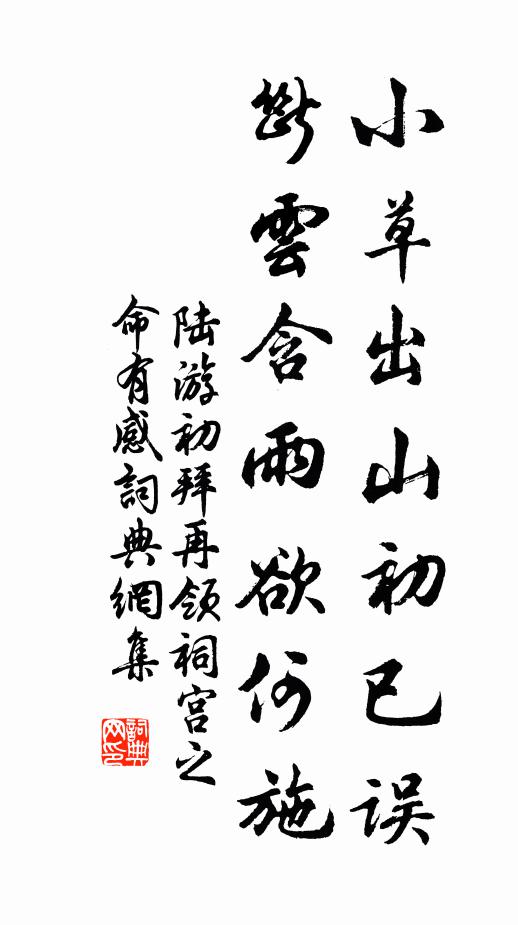 小草出山初已误
斷雲含雨欲何施
陆游初拜再领祠宫之
命有感詞典網集
詞典
网印